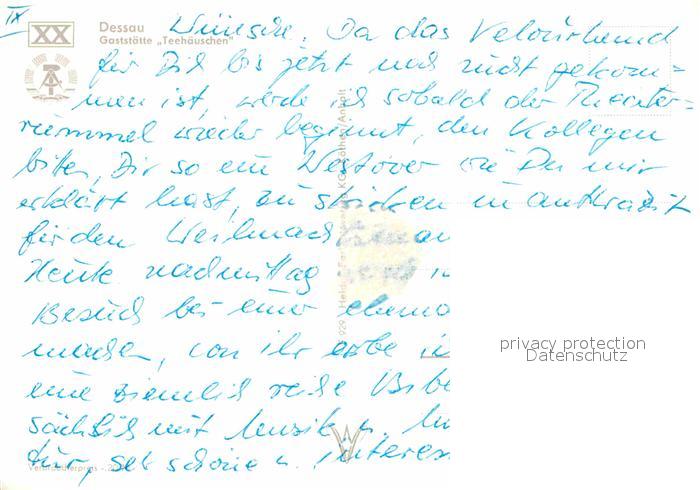 IX
XX
Dessau
Gaststätte „Teehäuschen"
Wünsche. Da das Velourhemd
für Dich bis jetzt noch nicht gekom=
men ist, werde ich sobald der Theater=
rummel wieder beginnt, den Kollegen
bitten, Dir so ein Westover wie Du mir
erklärt hast, zu stricken in anthrazit
für den Weihnachts
Heute nachmittag
Besuch bei einer ehema
machen, von ihr erbe ic
eine ziemlich reiche Bibe
sächlich mit Musik u.
tur, sehr schöne u. interess
Verbraucherpreis
privacy protection
Datenschutz